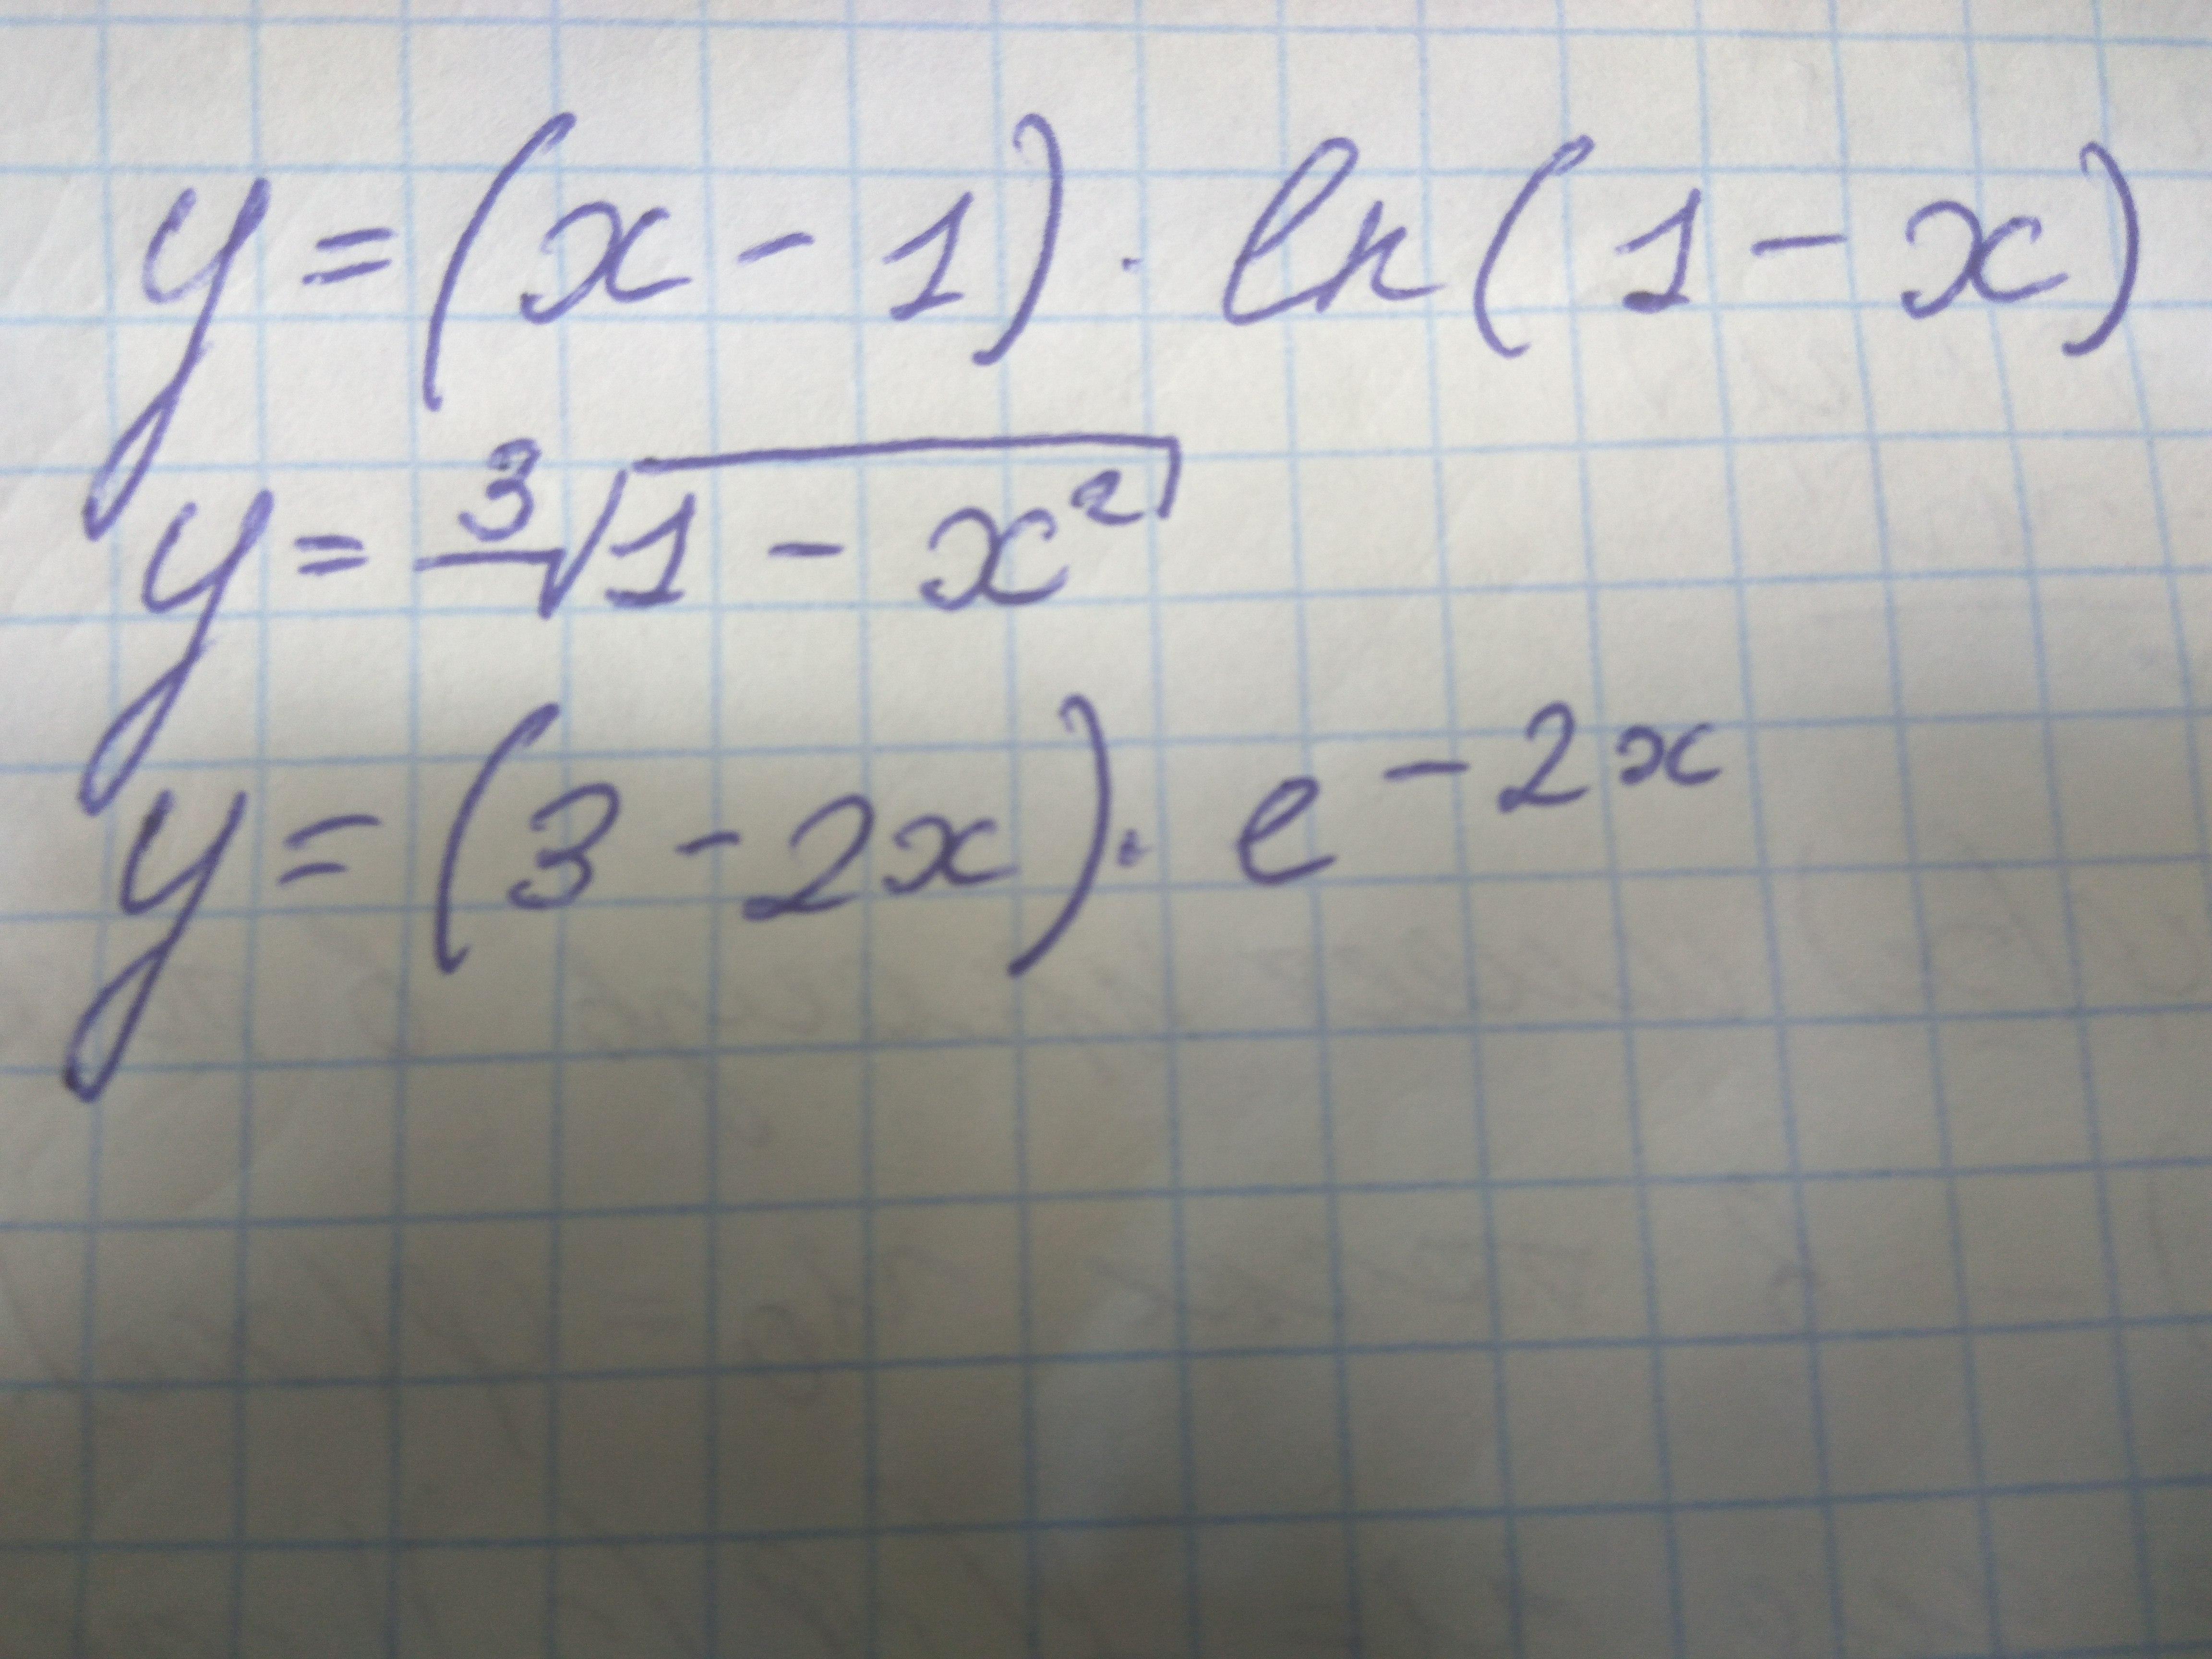 y = (x - 1) · ln(1 - x)
y = ∛(1 - x²)
y = (3 - 2x) · e^{-2x}